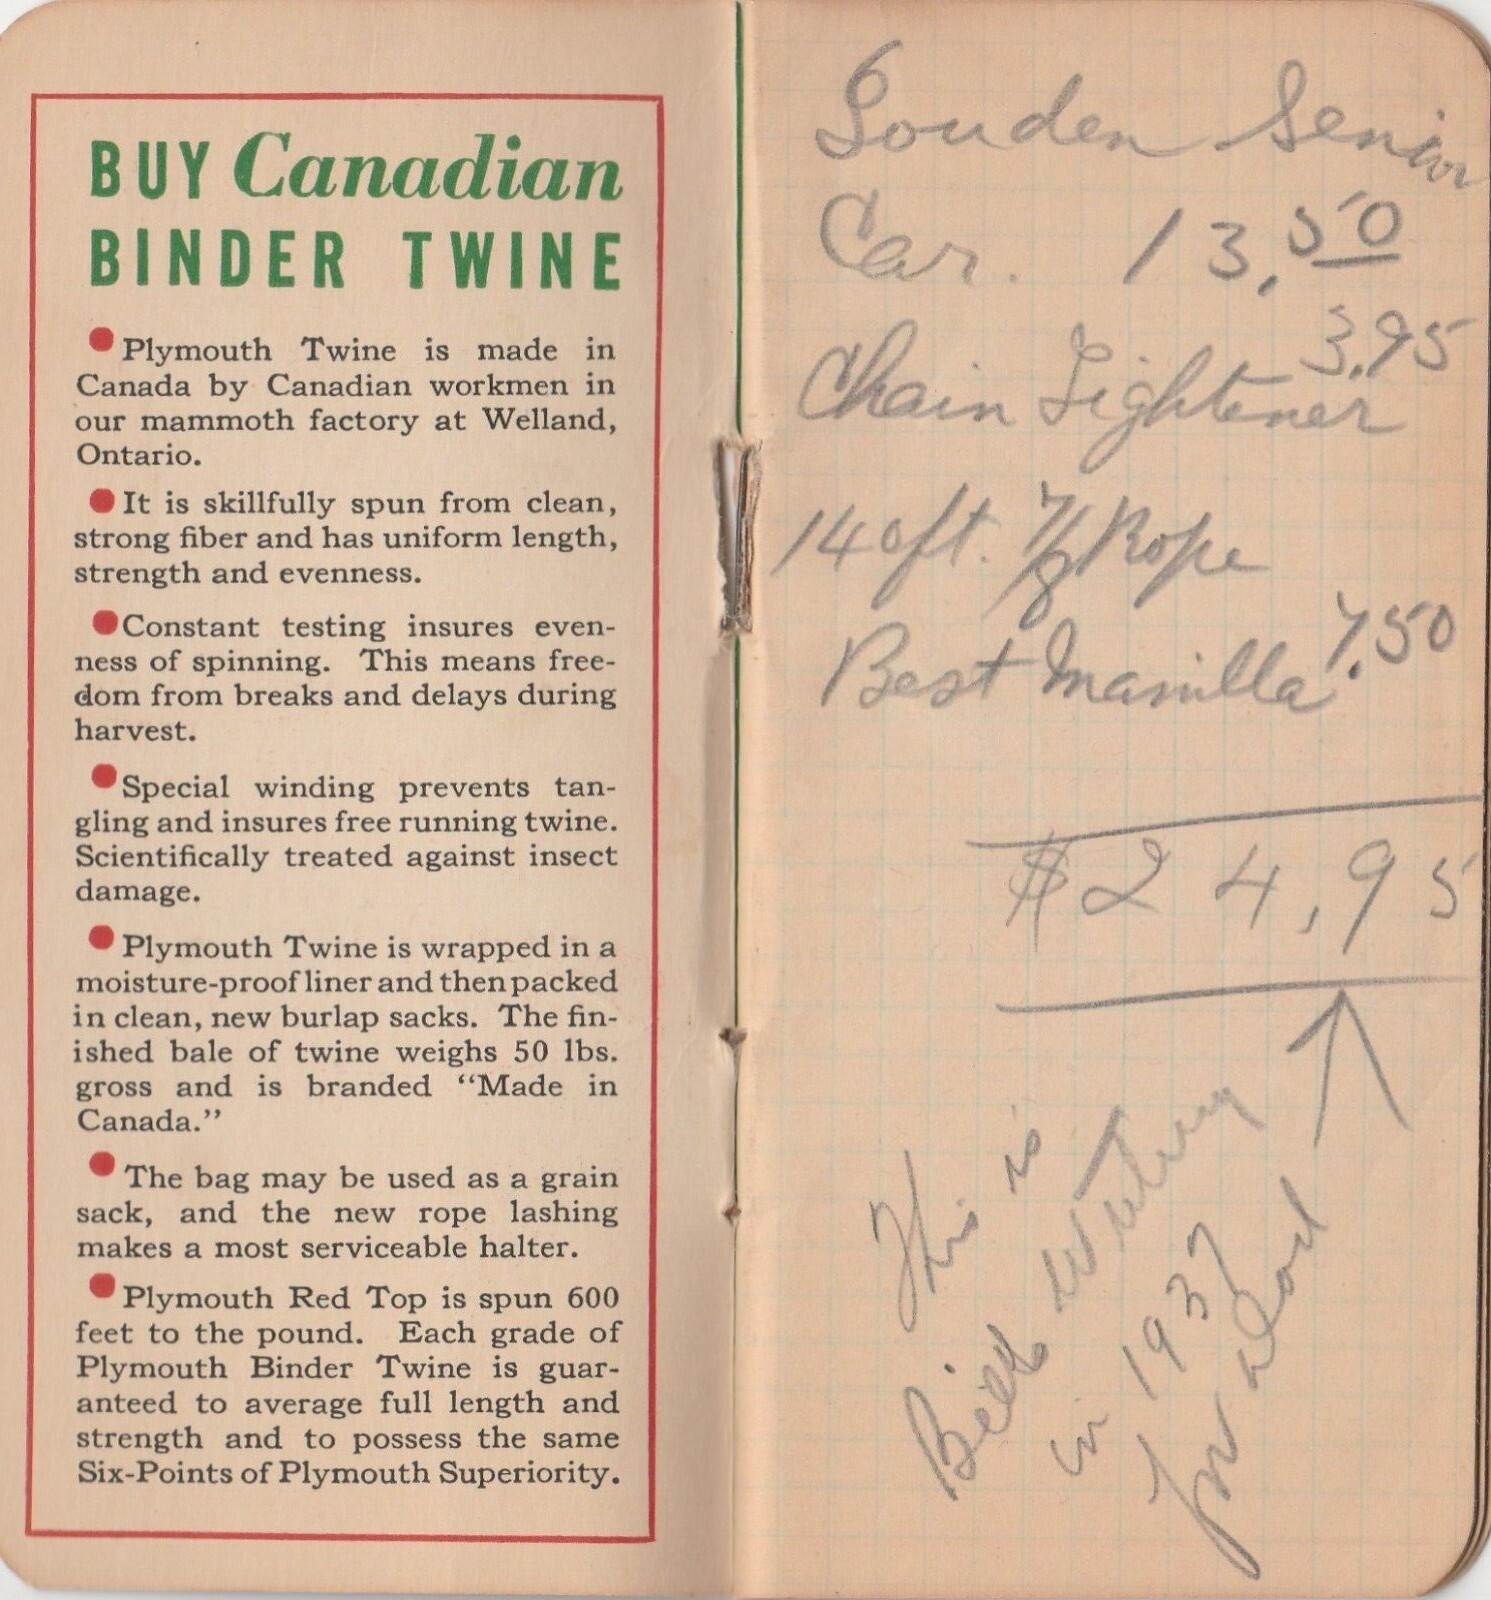 BUY Canadian
BINDER TWINE
● Plymouth Twine is made in
Canada by Canadian workmen in
our mammoth factory at Welland,
Ontario.
● It is skillfully spun from clean,
strong fiber and has uniform length,
strength and evenness.
● Constant testing insures even-
ness of spinning. This means free-
dom from breaks and delays during
harvest.
● Special winding prevents tan-
gling and insures free running twine.
Scientifically treated against insect
damage.
● Plymouth Twine is wrapped in a
moisture-proof liner and then packed
in clean, new burlap sacks. The fin-
ished bale of twine weighs 50 lbs.
gross and is branded “Made in
Canada.”
● The bag may be used as a grain
sack, and the new rope lashing
makes a most serviceable halter.
● Plymouth Red Top is spun 600
feet to the pound. Each grade of
Plymouth Binder Twine is guar-
anteed to average full length and
strength and to possess the same
Six-Points of Plymouth Superiority.
Louden Senior
Car. 13.50
3.95
Chain Tightener
140ft. 7/8 Rope
Best Manilla 7.50
$24,95
This is
Bill's writing
in 1937
for Dad